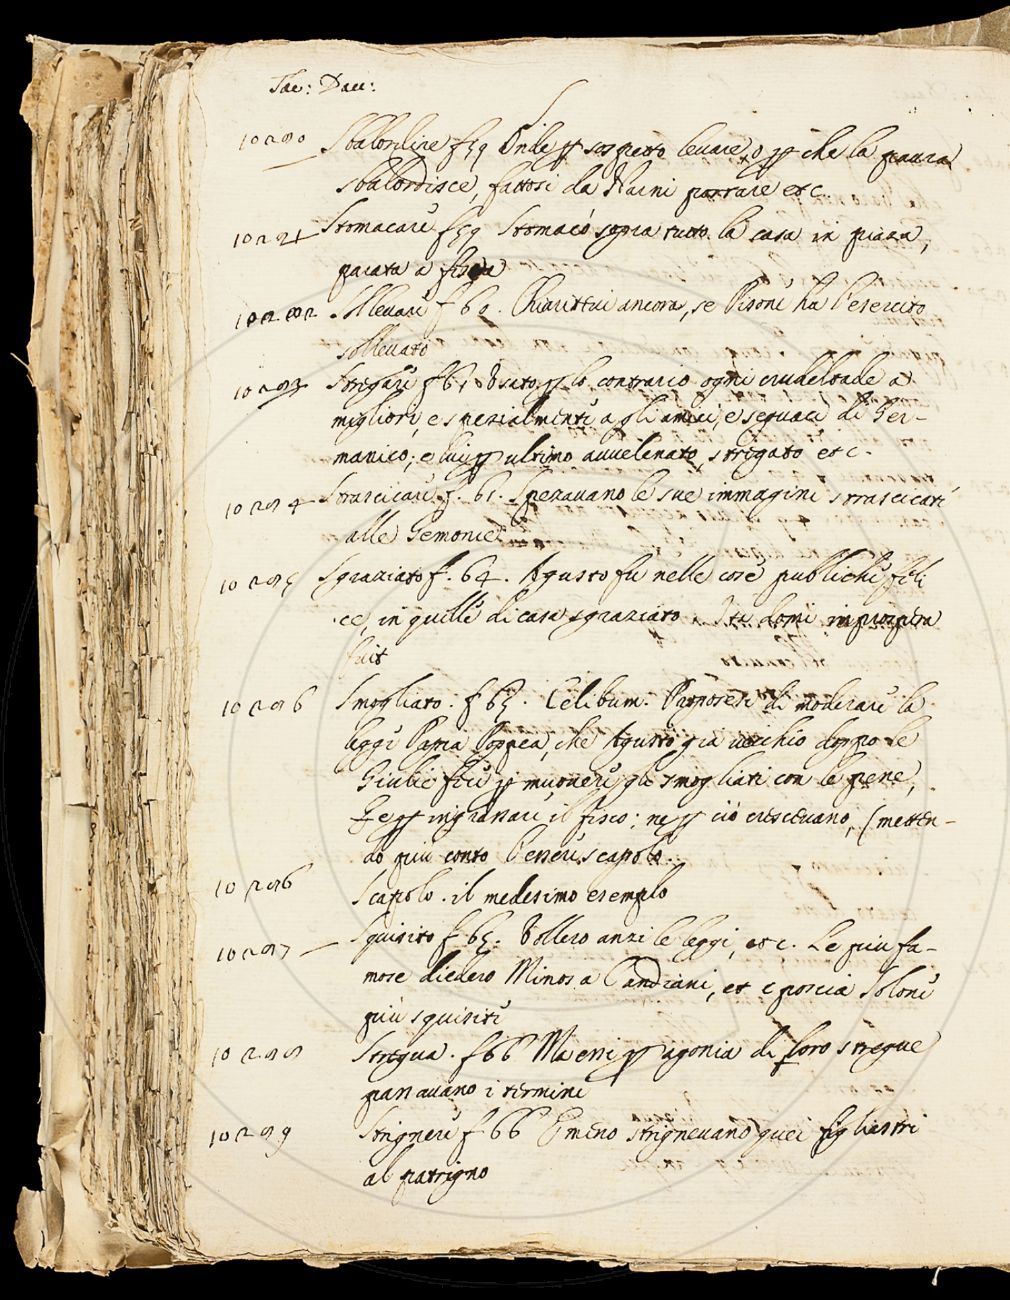 Tac: Dau:
S
10290 Sbalordire f 59 Onde p sospetto levare, o p che la paura
sbalordisce, fattosi da Marini portare etc.
10291 Stomacare f 59 Stomacò sopra tutto la casa in piazza,
parata a festa
10292 Sollevare f 60. Chiaritevi ancora, se Pisone ha l'esercito
sollevato
10293 Stregare f 61 Usato p lo contrario ogni crudeltade a
migliori, e spezialmente agli amici, e seguaci di Ger-
manico; e lui p ultimo avvelenato, stregato etc.
10294 Strascicare f. 61. Speravano le sue immagini strascicate
alle Gemonie
10295 Sgraziato f. 64. Agusto fu nelle cose publiche feli
ce, in quelle di casa sgraziato. domi improspera
fuit
10296 Smogliato. f 65. Celibum. Proposesi di moderare la
legge Papia Poppea, che Agusto già vecchio doppo le
Giulie fece p muovere gli smogliati con le pene,
e p ingrassare il fisco; ne p ciò crescevano, (metten-
do più conto l'essere scapolo.
10296 Scapolo. il medesimo esemplo
10297 Squisito f 65. Vollero anzi le leggi, etc. Le più fa-
mose diedero Minos a Candiani, et e poscia Solone
più squisite
10298 Stregua. f 66 Ma essi p agonia di loro stregue
passavano i termini
10299 Strignere f 66 E meno strignevano quei figliastri
al patrigno